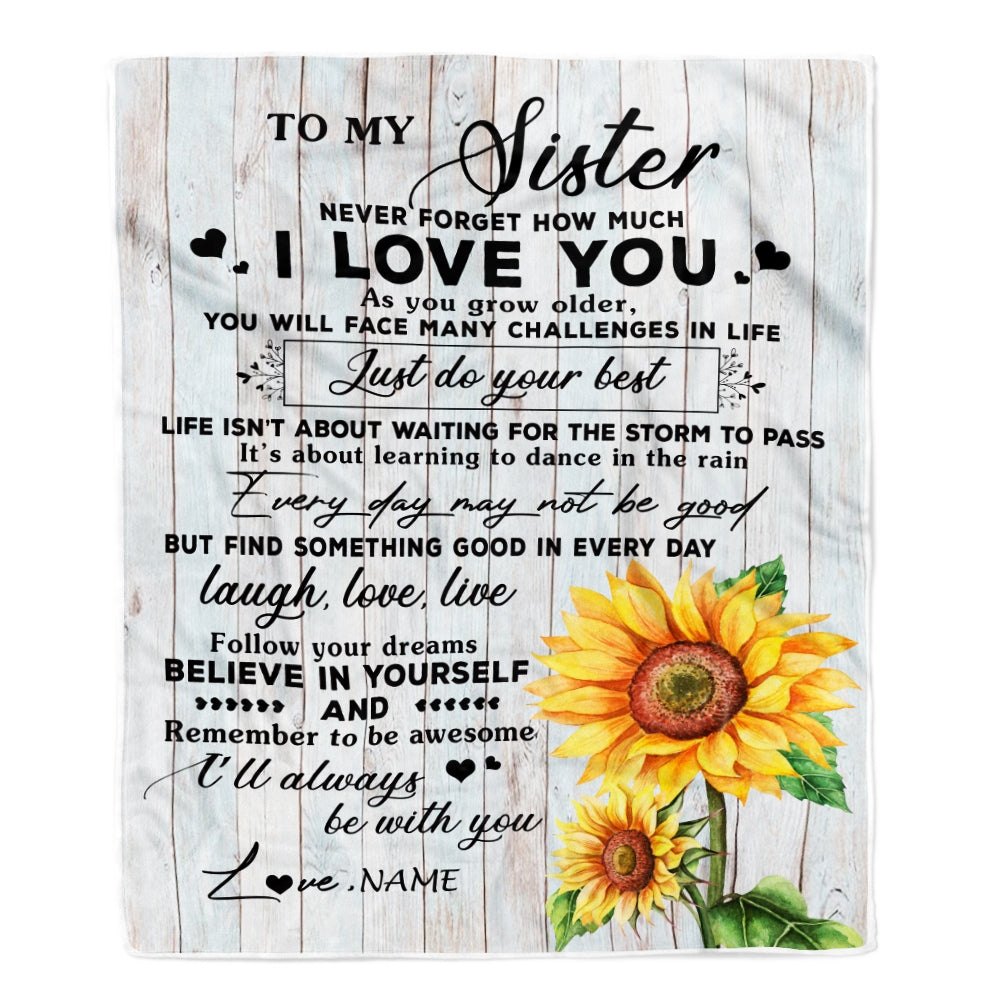 TO MY Sister
NEVER FORGET HOW MUCH
I LOVE YOU
As you grow older,
YOU WILL FACE MANY CHALLENGES IN LIFE
Just do your best
LIFE ISN'T ABOUT WAITING FOR THE STORM TO PASS
It's about learning to dance in the rain
Every day may not be good
BUT FIND SOMETHING GOOD IN EVERY DAY
laugh, love, live
Follow your dreams
BELIEVE IN YOURSELF
AND
Remember to be awesome
I'll always
be with you
Love, NAME